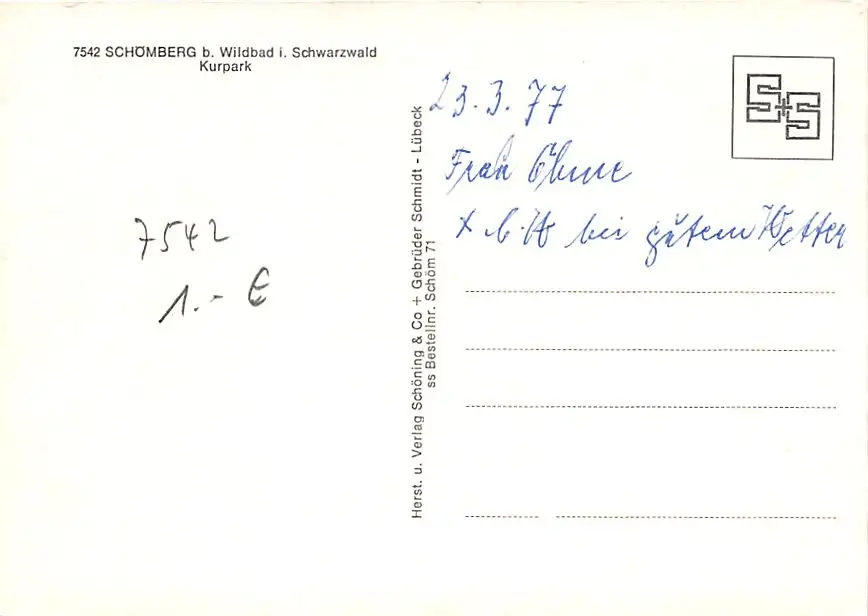 7542 SCHÖMBERG b. Wildbad i. Schwarzwald
Kurpark
7542
1.- €
Herst. u. Verlag Schöning & Co + Gebrüder Schmidt - Lübeck
ss Bestellnr. Schöm 71
S+S
23.3.77
Frau
bei gutem Wetter